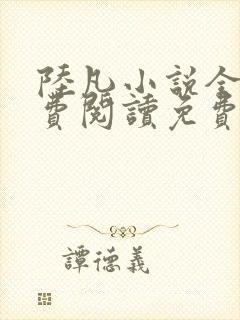 陸凡小說全
費閱讀免費
譚德義